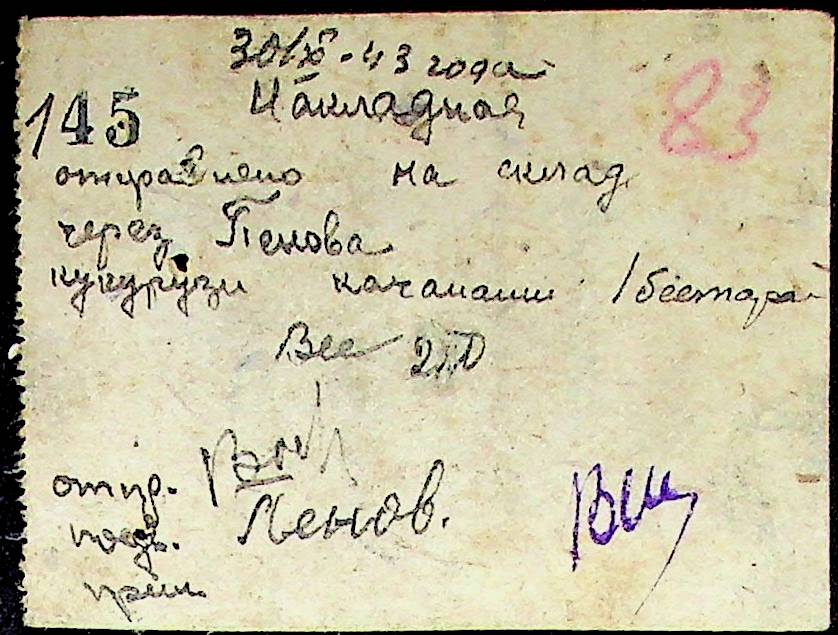 30/X-43 года
145 Накладная 83
отправлено на склад
через Пенова
кукурузи качанами /бестара
Вес
отпр.
подв. Пенов.
прин.